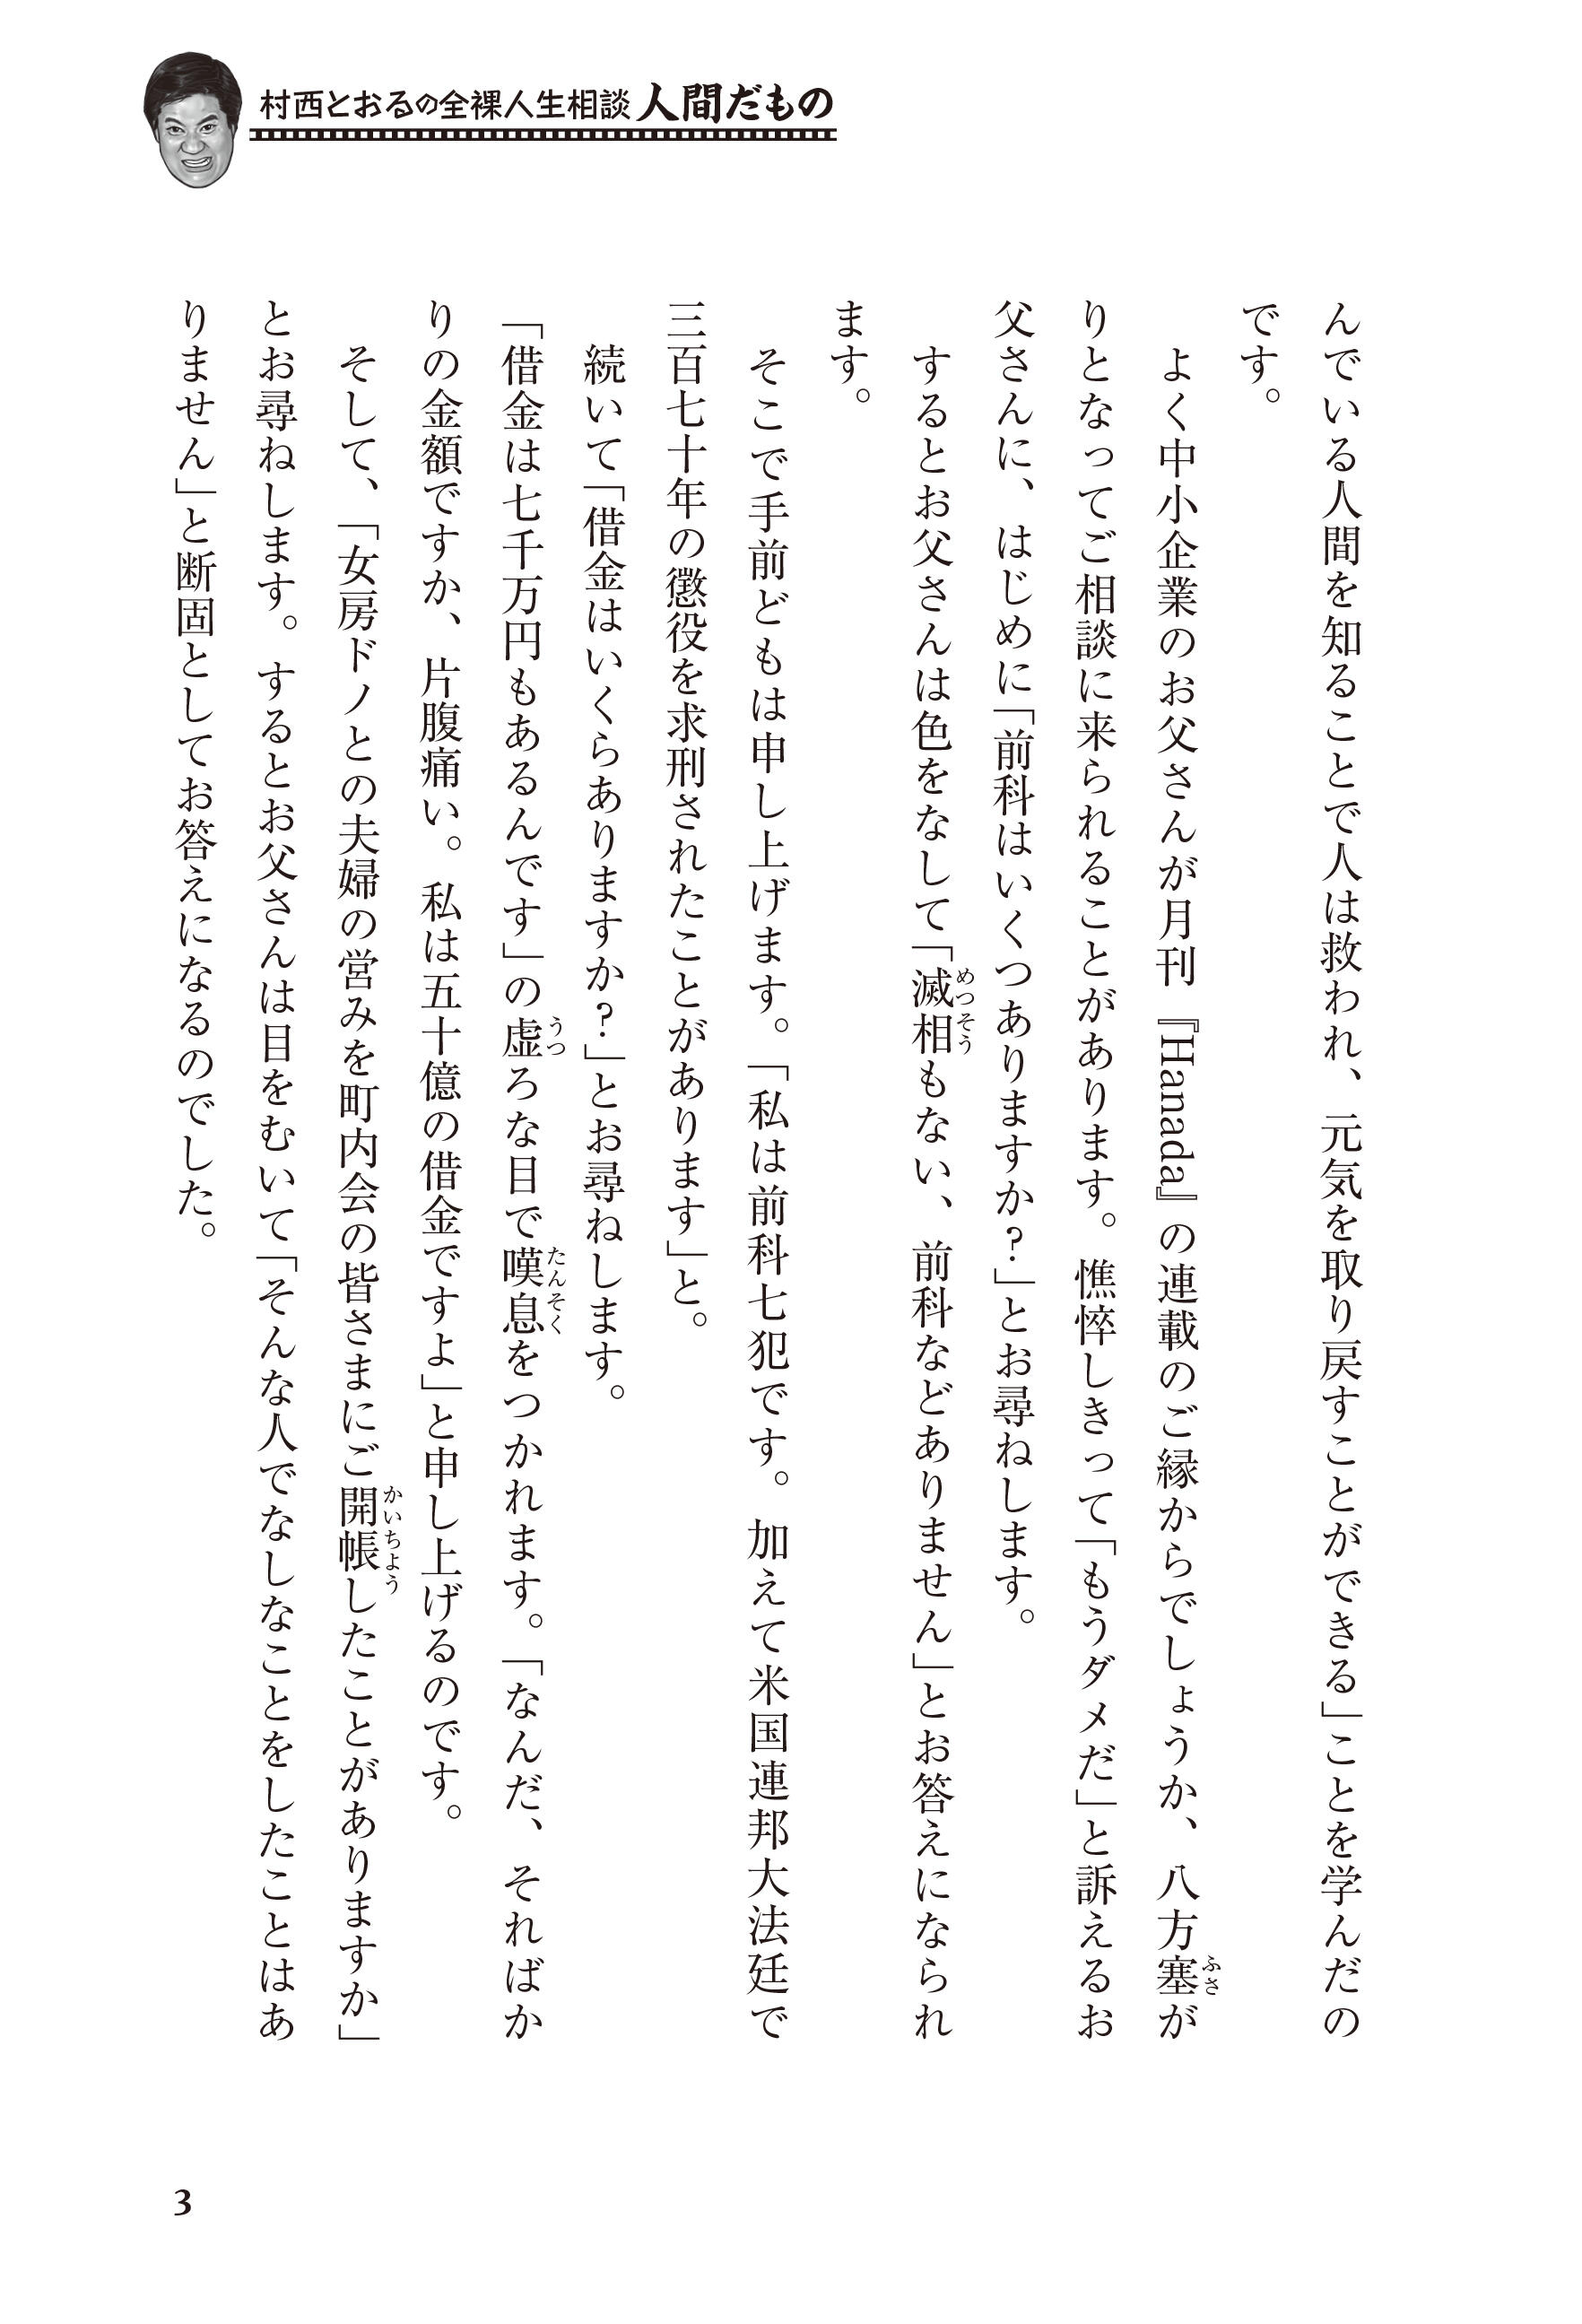 村西とおるの全裸人生相談 人間だもの
んでいる人間を知ることで人は救われ、元気を取り戻すことができる」ことを学んだの
です。
よく中小企業のお父さんが月刊『Hanada』の連載のご縁からでしょうか、八方塞が
りとなってご相談に来られることがあります。憔悴しきって「もうダメだ」と訴えるお
父さんに、はじめに「前科はいくつありますか？」とお尋ねします。
するとお父さんは色をなして「滅相もない、前科などありません」とお答えになられ
ます。
そこで手前どもは申し上げます。「私は前科七犯です。加えて米国連邦大法廷で
三百七十年の懲役を求刑されたことがあります」と。
続いて「借金はいくらありますか？」とお尋ねします。
「借金は七千万円もあるんです」の虚ろな目で嘆息をつかれます。「なんだ、そればか
りの金額ですか、片腹痛い。私は五十億の借金ですよ」と申し上げるのです。
そして、「女房ドノとの夫婦の営みを町内会の皆さまにご開帳したことがありますか」
とお尋ねします。するとお父さんは目をむいて「そんな人でなしなことをしたことはあ
りません」と断固としてお答えになるのでした。
ふさ
めつそう
うつ
たんそく
かいちよう
3